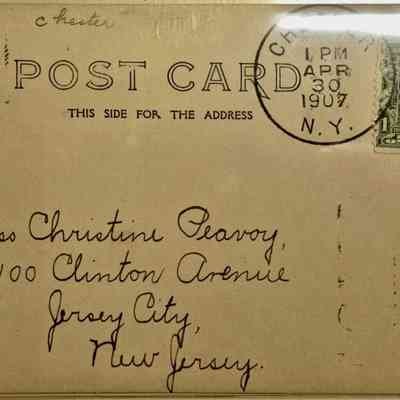 Chester
POST CARD
THIS SIDE FOR THE ADDRESS
CHESTER
1 PM
APR
30
1907
N.Y.
1
ss Christine Peavoy,
400 Clinton Avenue
Jersey City,
New Jersey.